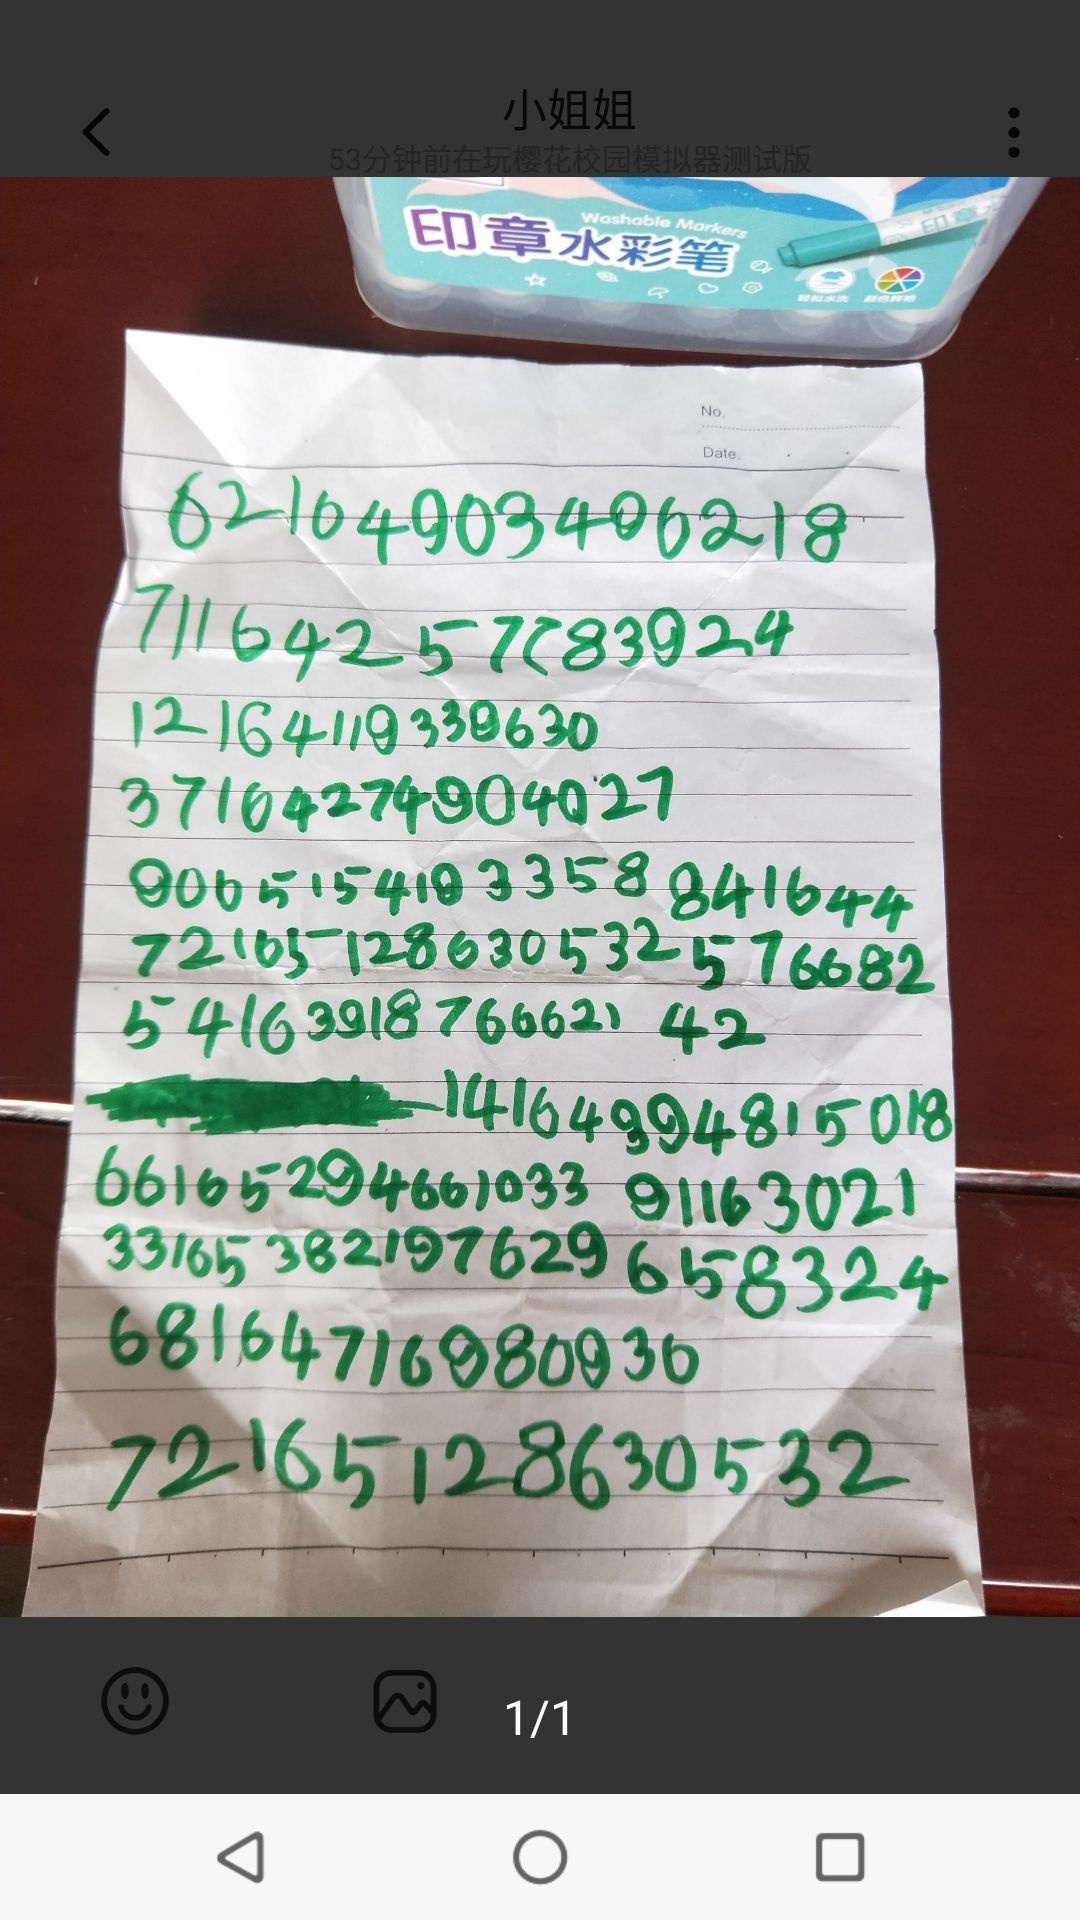 小姐姐
53分钟前在玩樱花校园模拟器测试版
Washable Markers
印章水彩笔
轻松水洗
No.
Date.
6216490340621 8
7116425 7783924
1216411 9339630
37164274904027
9065154193358 841644
72165128630532 576682
54163918766621 42
1416499481 5018
66165294661033 91163021
33165382197629 658324
68164716980936
72165128630532
1/1